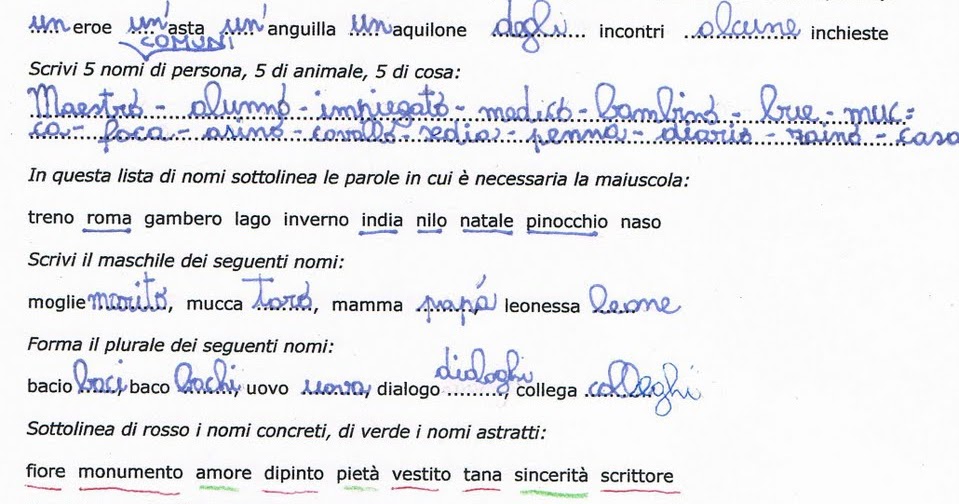 un eroe un'asta un'anguilla un aquilone degli incontri alcune inchieste
COMUNI
Scrivi 5 nomi di persona, 5 di animale, 5 di cosa:
Maestro - alunno - impiegato - medico - bambino - bue - muc=
ca - foca - asino - cavallo - sedia - penna - diario - zaino - casa
In questa lista di nomi sottolinea le parole in cui è necessaria la maiuscola:
treno roma gambero lago inverno india nilo natale pinocchio naso
Scrivi il maschile dei seguenti nomi:
moglie marito, mucca toro, mamma papá leonessa leone
Forma il plurale dei seguenti nomi:
bacio baci, baco bachi, uovo uova, dialogo dialoghi, collega colleghi
Sottolinea di rosso i nomi concreti, di verde i nomi astratti:
fiore monumento amore dipinto pietà vestito tana sincerità scrittore